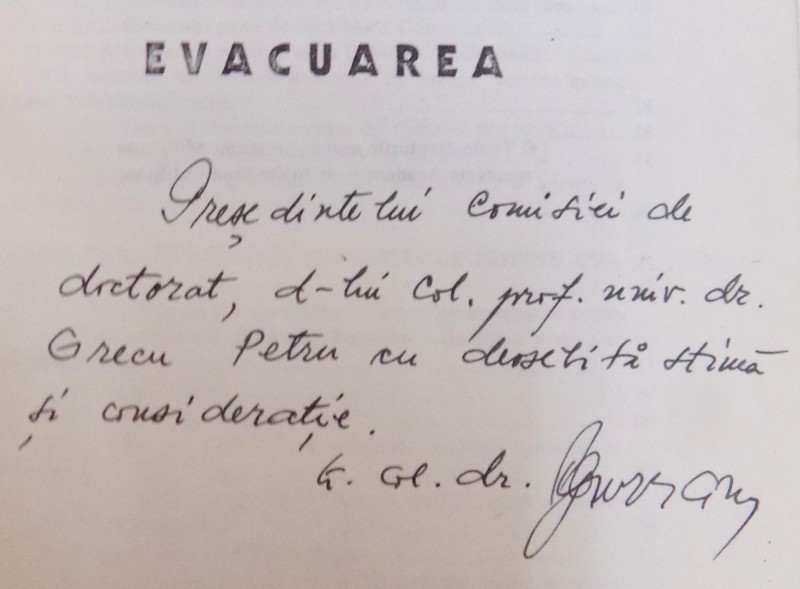 EVACUAREA
Președintelui Comisiei de
doctorat, d-lui Col. prof. univ. dr.
Grecu Petru cu deosebită stimă
și considerație.
Lt. col. dr.